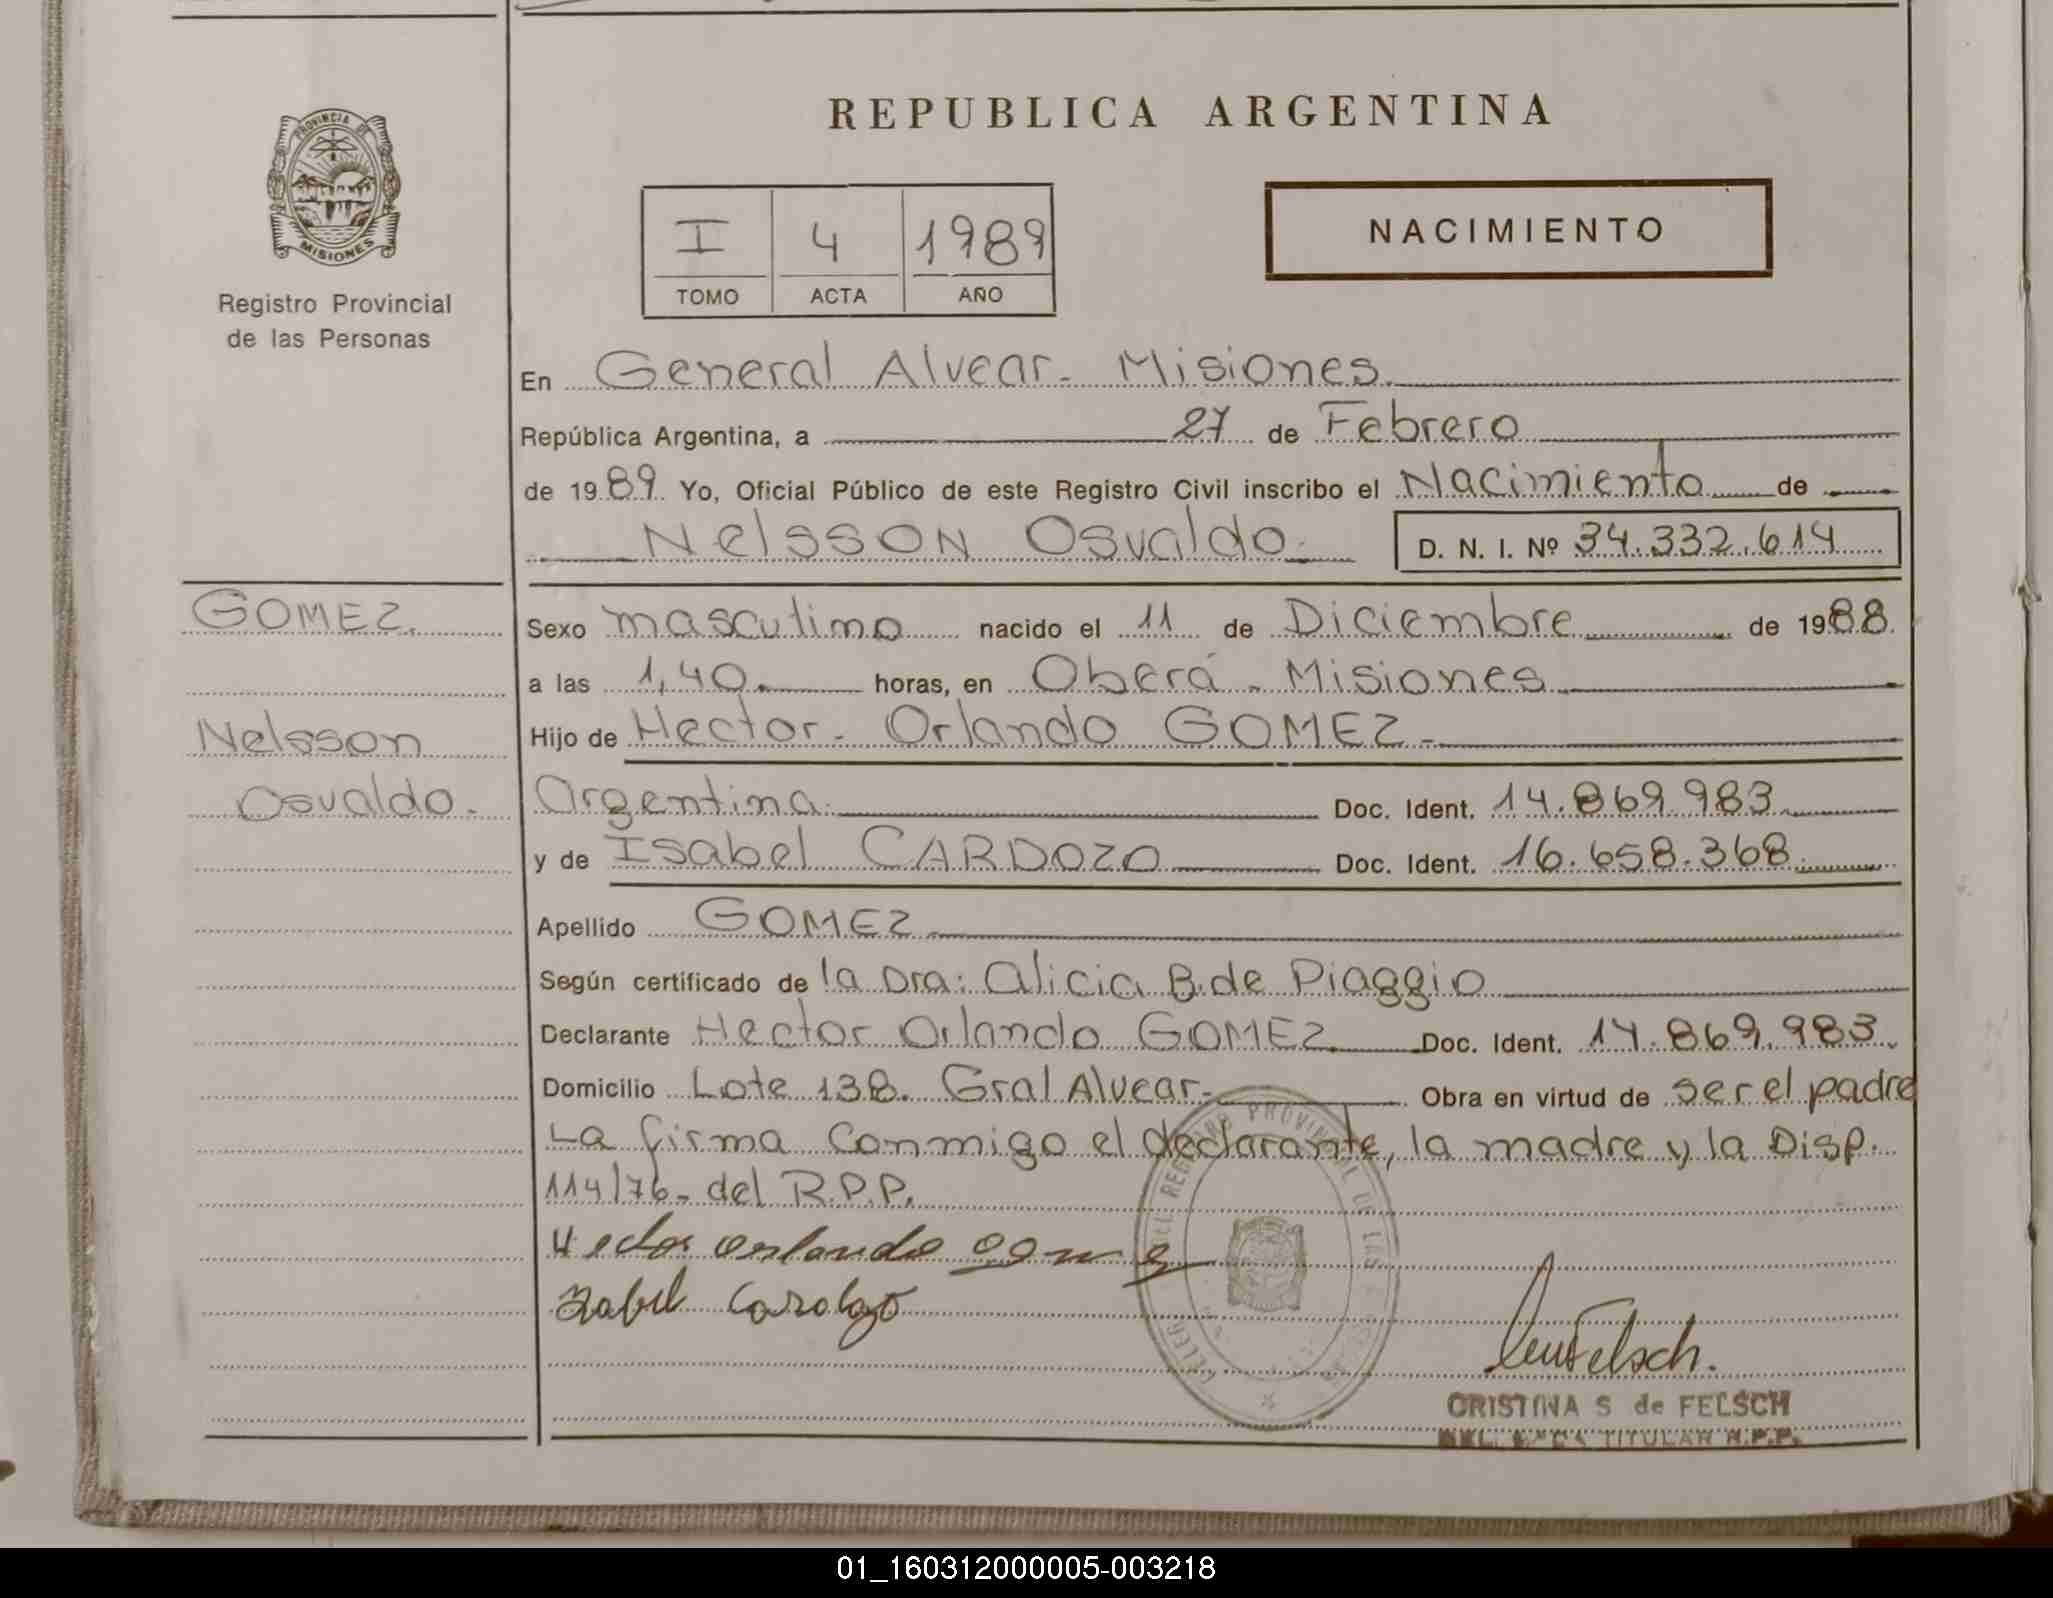 PROVINCIA DE
MISIONES
Registro Provincial
de las Personas
REPUBLICA ARGENTINA
I 4 1989
TOMO ACTA AÑO
NACIMIENTO
En General Alvear - Misiones
República Argentina, a 27 de Febrero
de 1989 Yo, Oficial Público de este Registro Civil inscribo el Nacimiento de
Nelsson Osvaldo. D. N. I. Nº 34.332.614
GOMEZ.
Nelsson
Osvaldo.
Sexo masculino nacido el 11 de Diciembre de 1988
a las 1,40 horas, en Oberá - Misiones
Hijo de Hector - Orlando GOMEZ -
Argentina. Doc. Ident. 14.869.983
y de Isabel CARDOZO Doc. Ident. 16.658.368
Apellido GOMEZ
Según certificado de la Dra: Alicia B. de Piaggio
Declarante Hector Orlando GOMEZ Doc. Ident. 14.869.983.
Domicilio Lote 138. Gral Alvear - Obra en virtud de ser el padre
La firma conmigo el declarante, la madre y la Disp.
114/76 - del R.P.P.
Hector orlando gomez
Isabel Cardozo
REGISTRO PROVINCIAL DE LAS
Felsch.
CRISTINA S de FELSCH
TITULAR R.P.P.
01_160312000005-003218